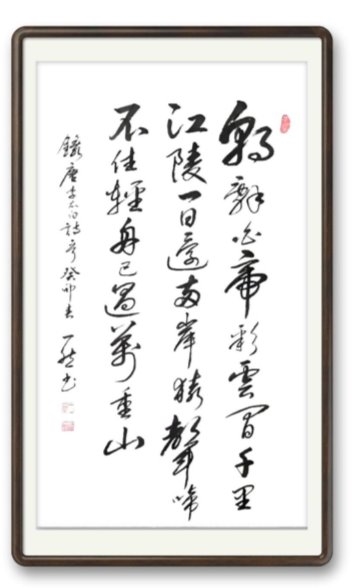 朝辭白帝彩雲間千里
江陵一日還兩岸猿聲啼
不住輕舟已過萬重山
錄唐李太白詩 癸卯春 一 书